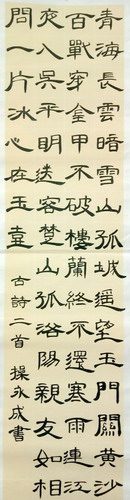 青海長雲暗雪山孤城遙望玉門關黃沙
百戰穿金甲不破樓蘭終不還寒雨連江
夜入吳平明送客楚山孤洛陽親友如相
問一片冰心在玉壺
古詩二首 操永成書